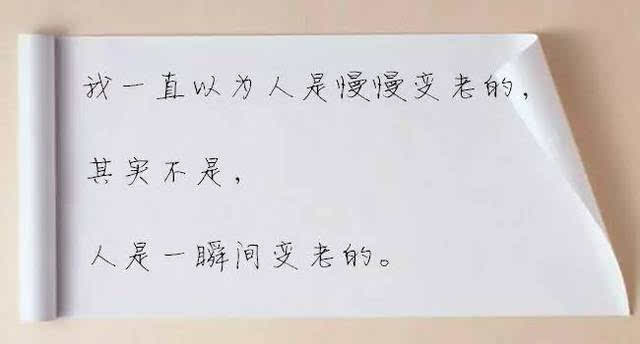 我一直以为人是慢慢变老的，
其实不是，
人是一瞬间变老的。